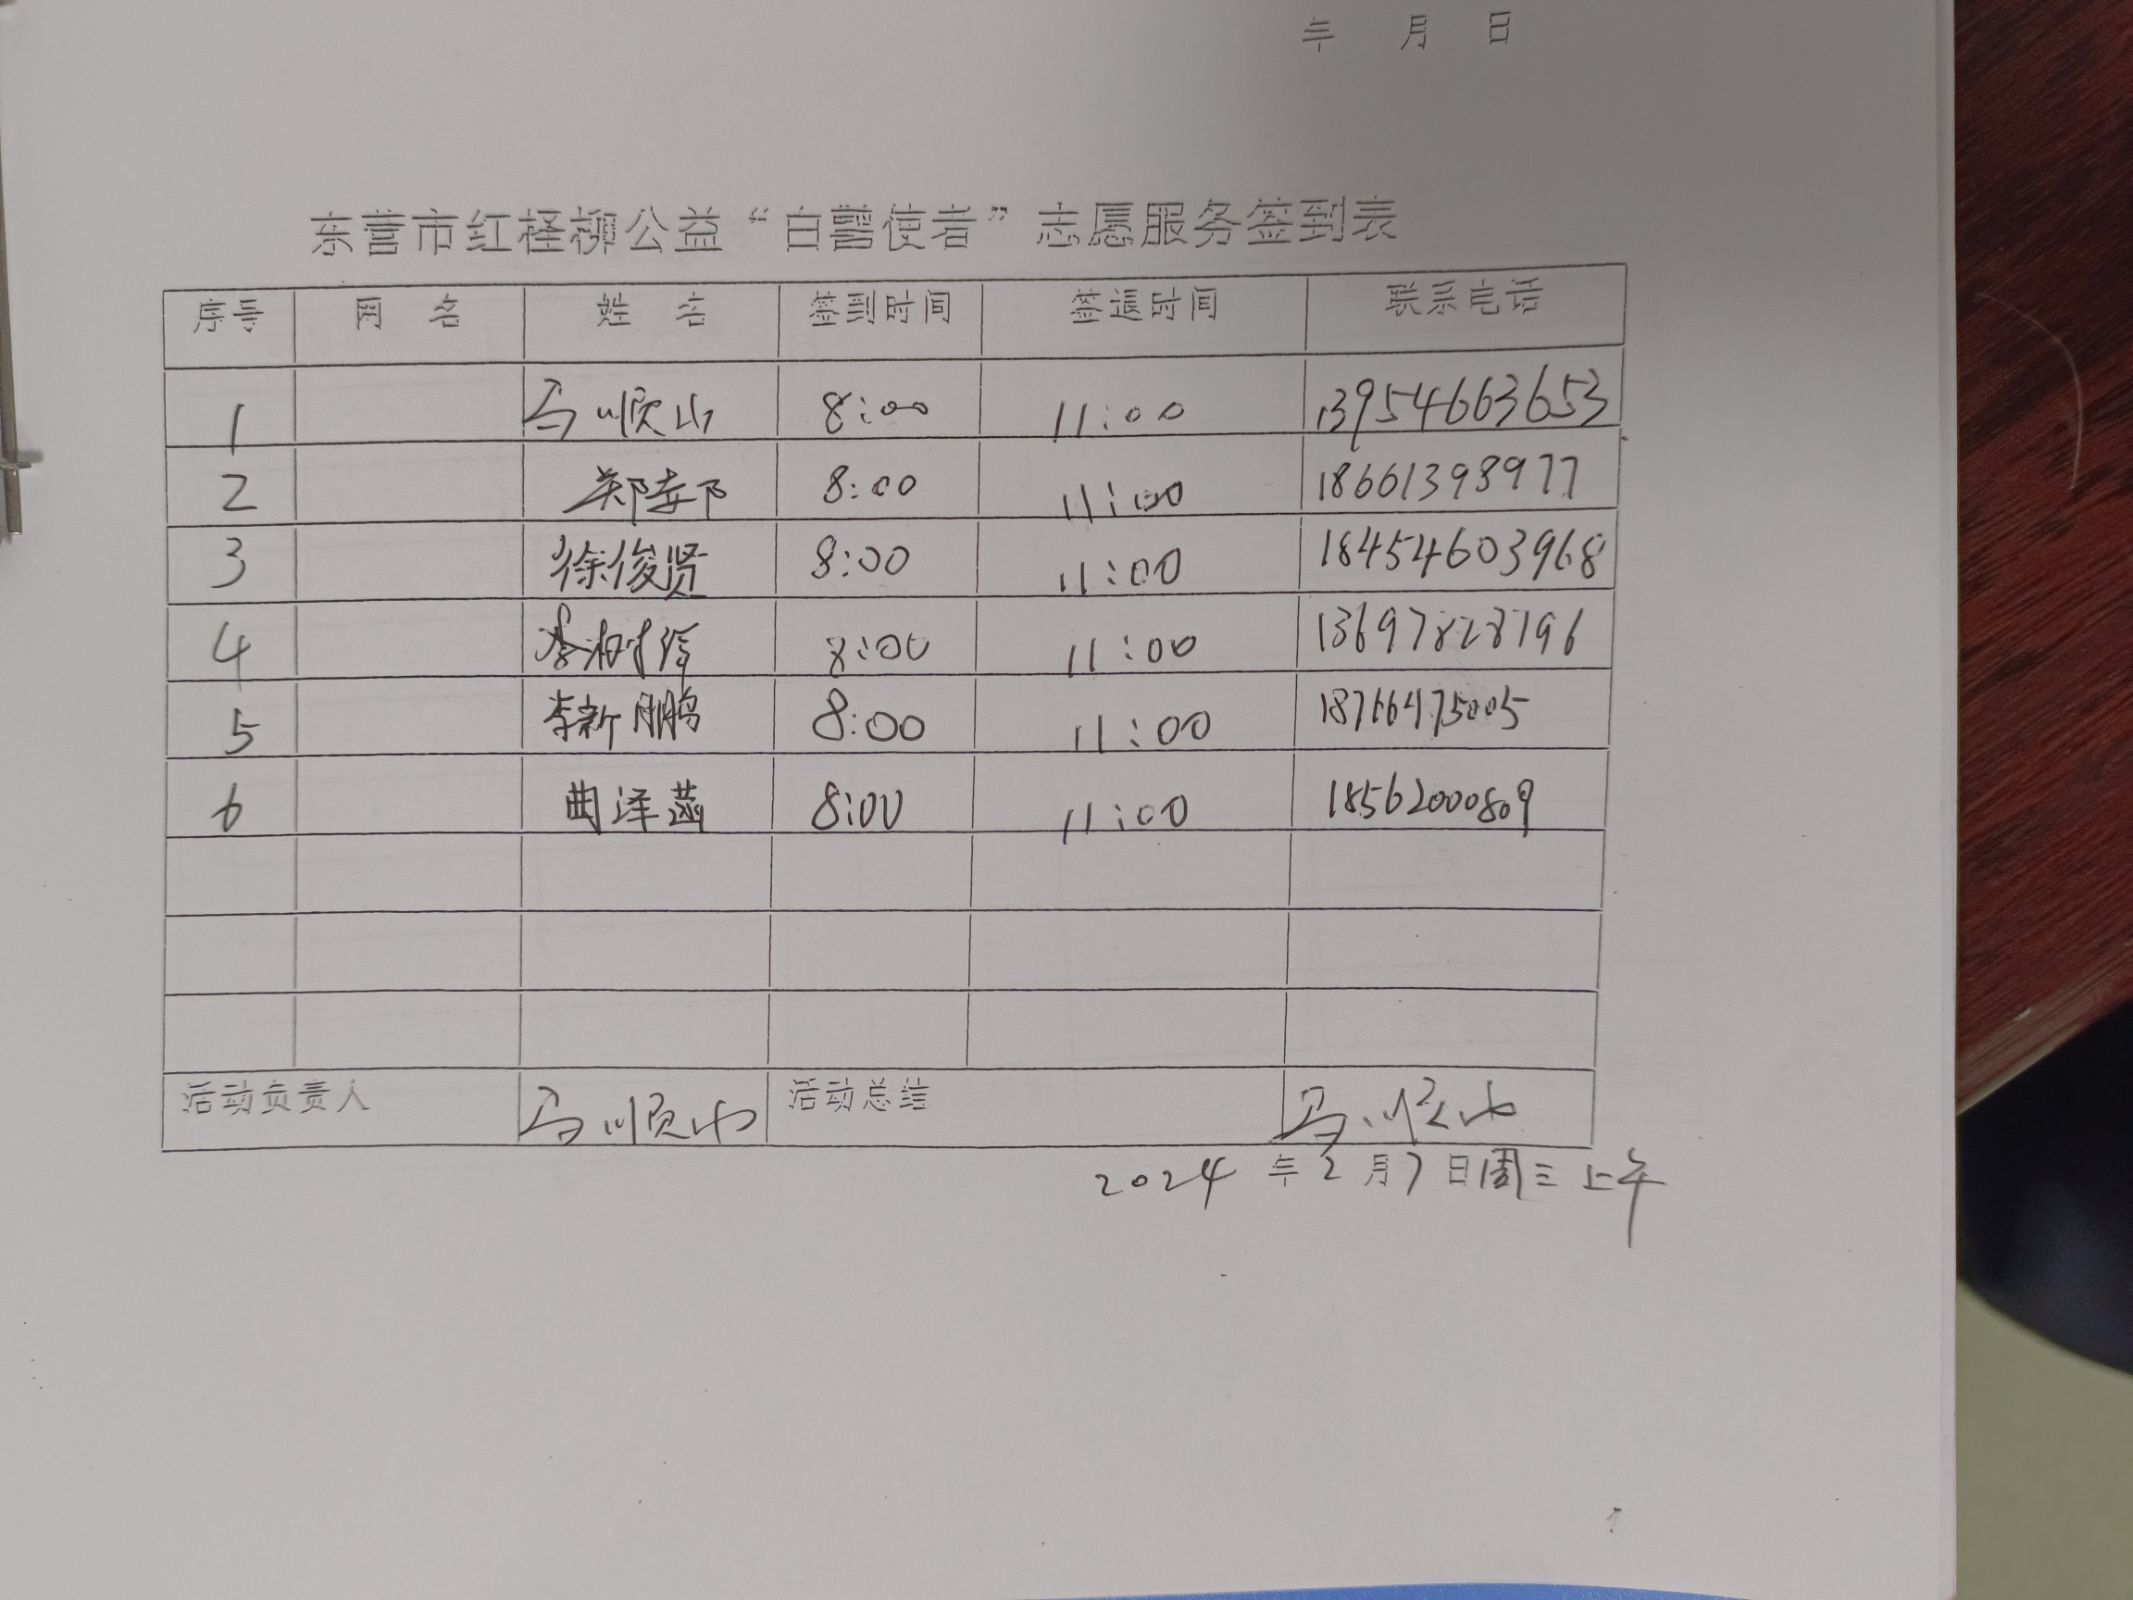 年 月 日
东营市红柽柳公益“白鹭使者”志愿服务签到表
序号 网 名 姓 名 签到时间 签退时间 联系电话
1 马顺山 8:00 11:00 13954663653
2 郑 8:00 11:00 18661398977
3 徐俊贤 8:00 11:00 18454603968
4 李树 8:00 11:00 13697828796
5 李新鹏 8:00 11:00 18766475005
6 曲泽菡 8:00 11:00 18562000809
活动负责人 马顺山 活动总结 马顺山
2024 年 2 月 7 日 周三上午